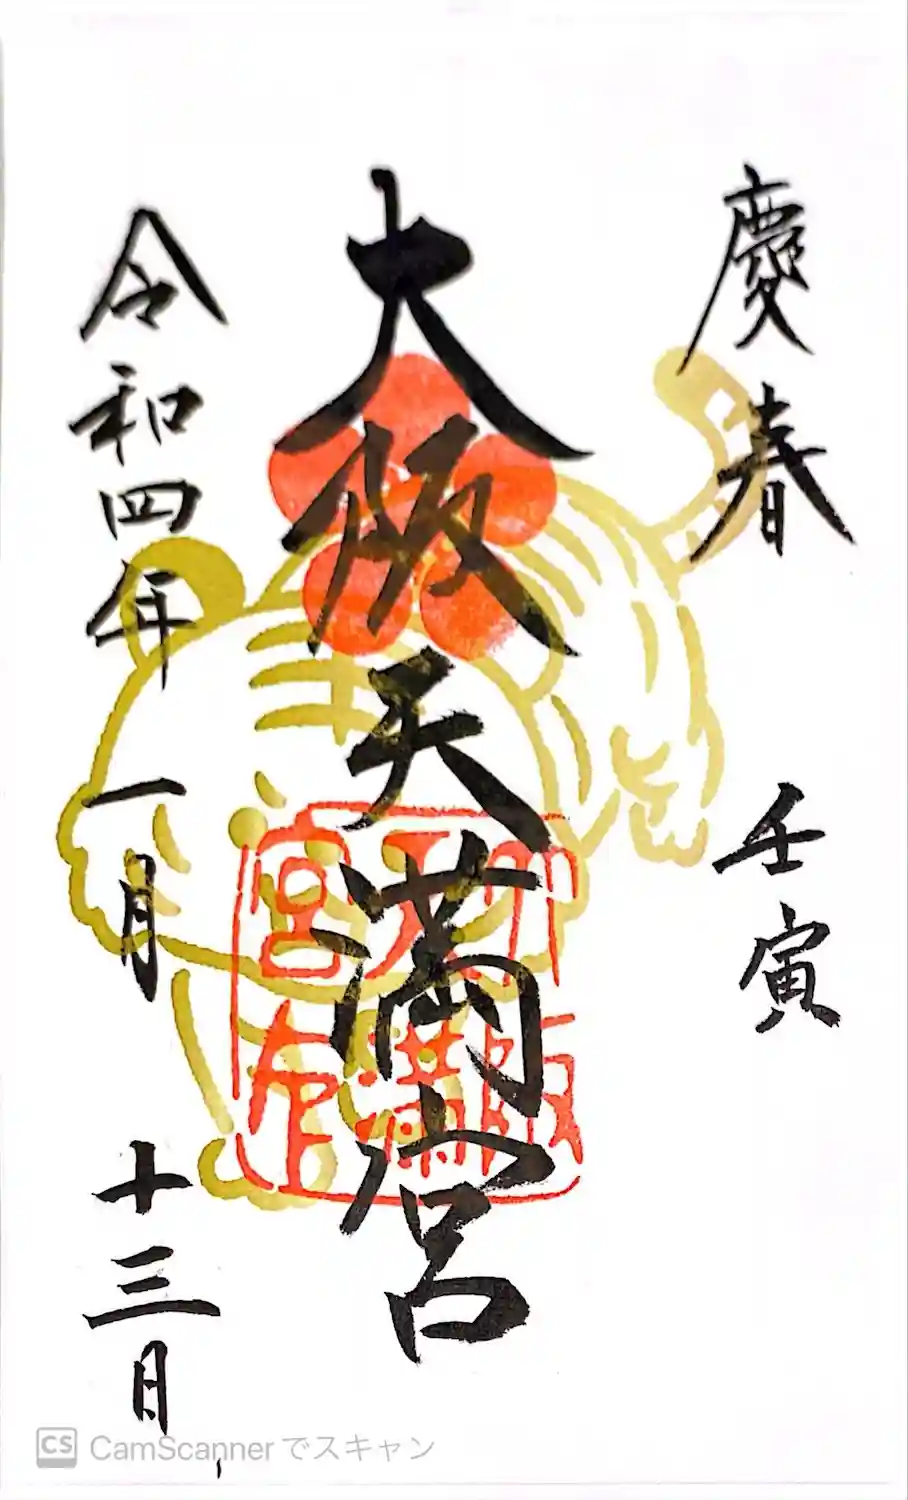 慶春
壬寅
大阪天満宮
令和四年一月十三日
CS CamScannerでスキャン